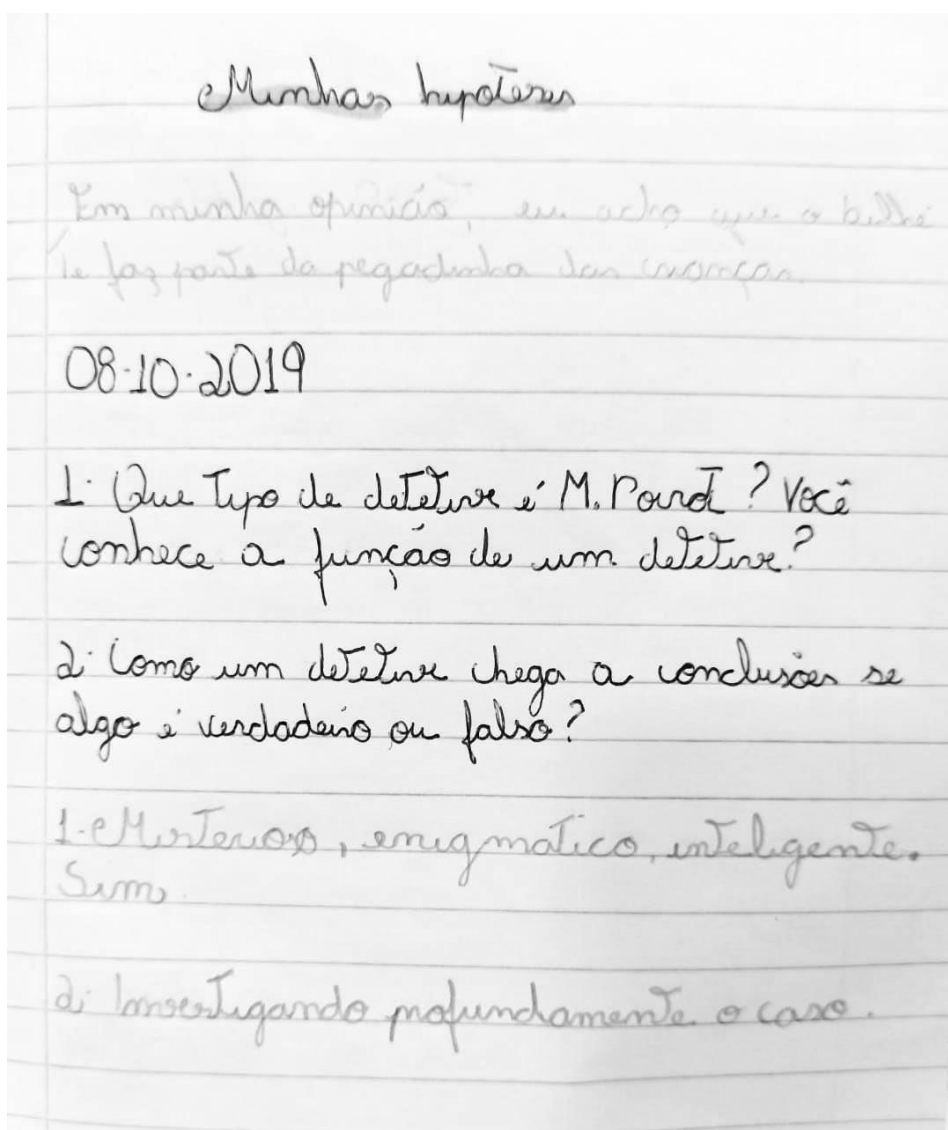 Minhas hipóteses
Em minha opinião, eu acho que o bilhe
te faz parte da pegadinha das crianças.
08.10.2019
1. Que tipo de detetive é M. Poirot? Você
conhece a função de um detetive?
2. Como um detetive chega a conclusões se
algo é verdadeiro ou falso?
1. Misterioso, enigmático, inteligente.
Sim.
2. Investigando profundamente o caso.